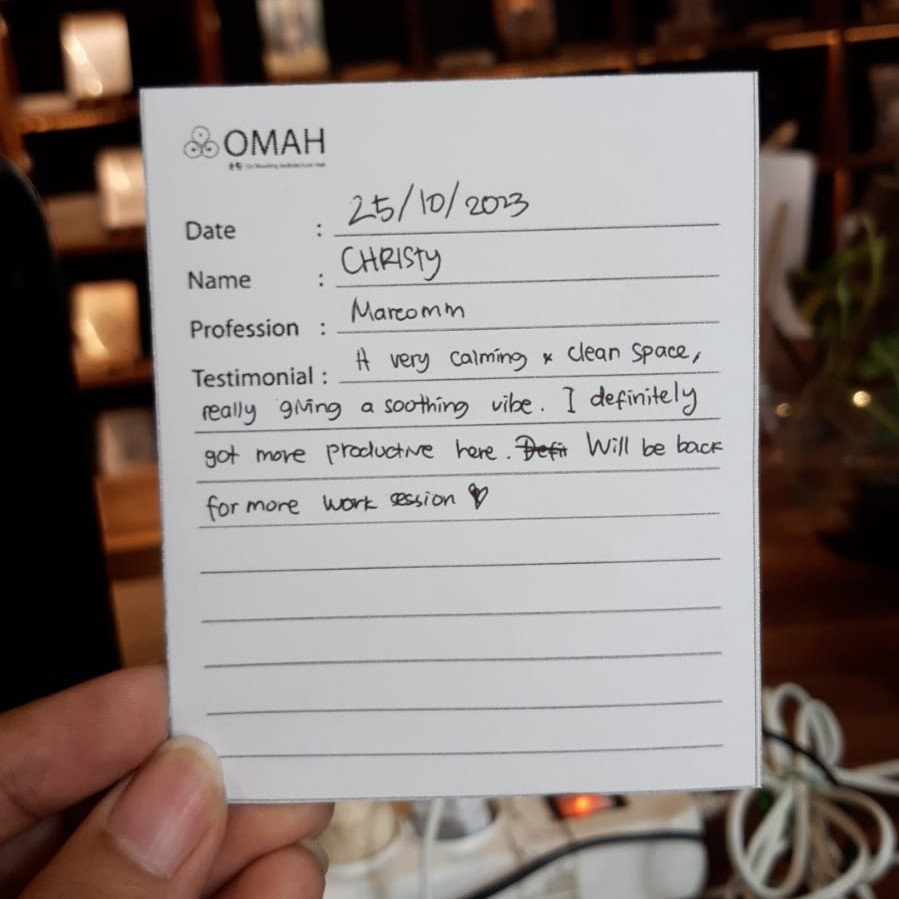 OMAH
Date : 25/10/2023
Name : CHRISTY
Profession : Marcomm
Testimonial : A very calming & clean space,
really giving a soothing vibe. I definitely
got more productive here. Defin Will be back
for more work session